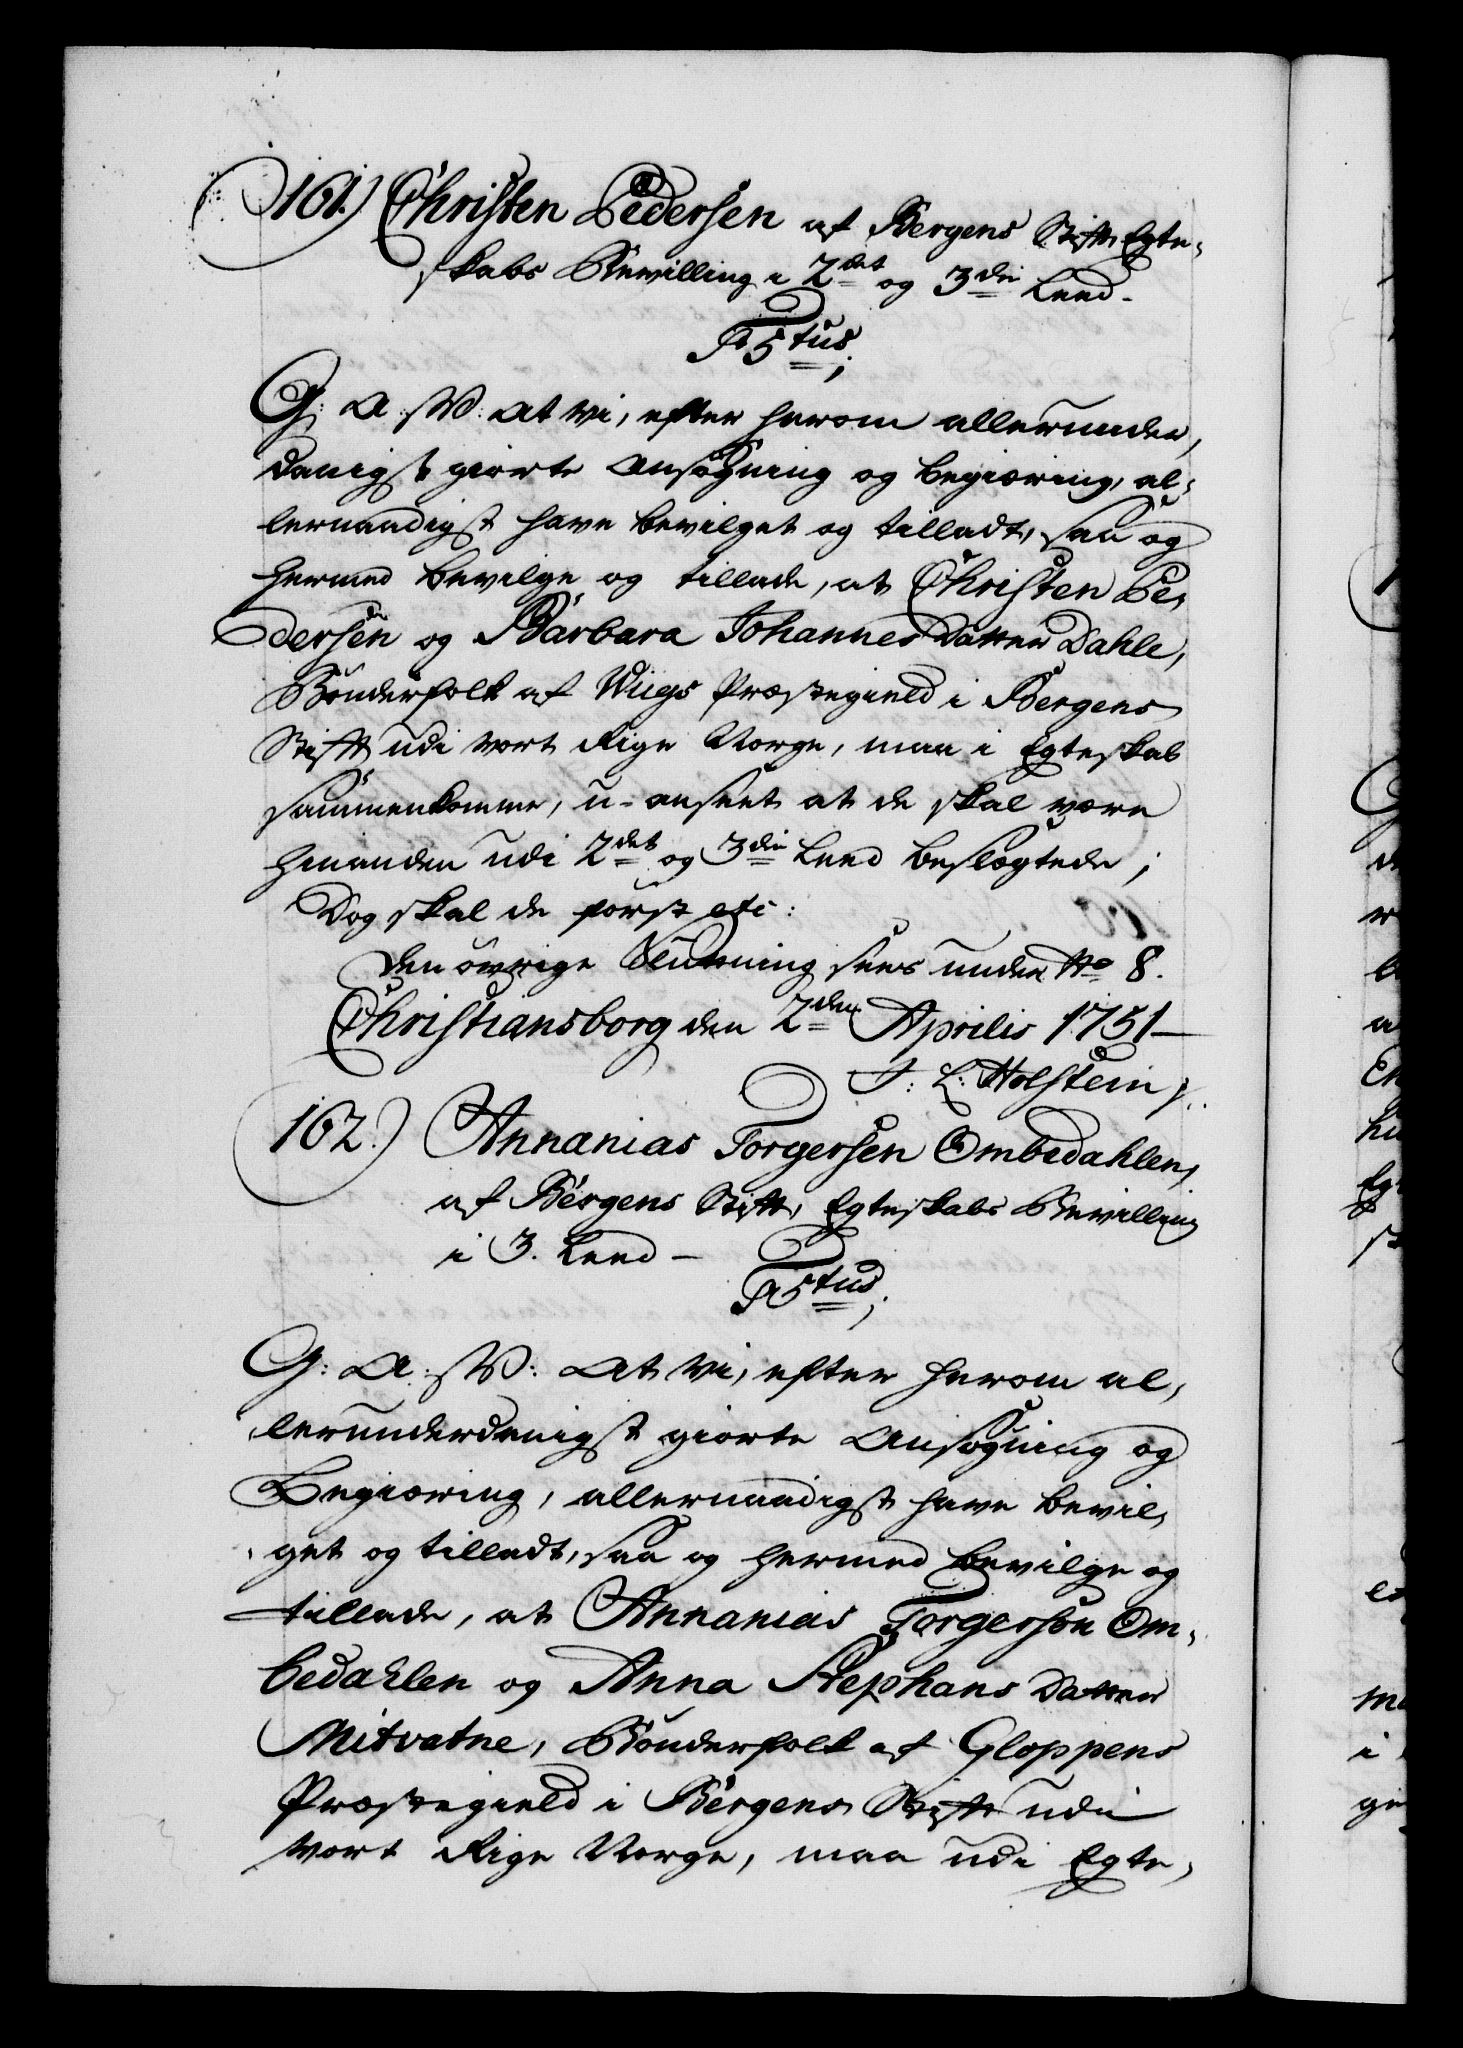 161.) Christen Pedersen af Bergens Stift Egte-
skabs Bevilling i 2det og 3die Leed-
F5tus;
G: A: W: at vi, efter herom allerunder,
danigst giorte Ansøgning og begiæring, al-
lernaadigst have bevilget og tilladt, saa og
hermed bevilge og tillade, at Christen Pe,
dersen og Barbara Johannes Datter Dahle,
Bønderfolk af Wiigs Præstegield i Bergens
Stift udi vort Rige Norge, maa i Egteskab
sammenkomme, u-anseet at de skal være
hinanden udi 2det og 3die Leed beslægtede;
Dog skal de først etc:
den øvrige Slutning sees under No 8.
Christiansborg den 2den Aprilis 1751-
J: L: Holstein
162.) Annanias Torgersen Ombedahlen,
af Bergens Stift, Egteskabs Bevilling
i 3. Leed -
F5tus;
G: A: W: At vi, efter herom al,
lerunderdanigst giorte Ansøgning og
Begiæring, allernaadigst have bevil,
get og tilladt, saa og hermed bevilge og
tillade, at Annanias Torgersøn Om,
bedahlen og Anna Stephans Datter
Mitvatne, Bønderfolk af Gloppens
Præstegield i Bergens Stift udi
vort Rige Norge, maa udi Egte,